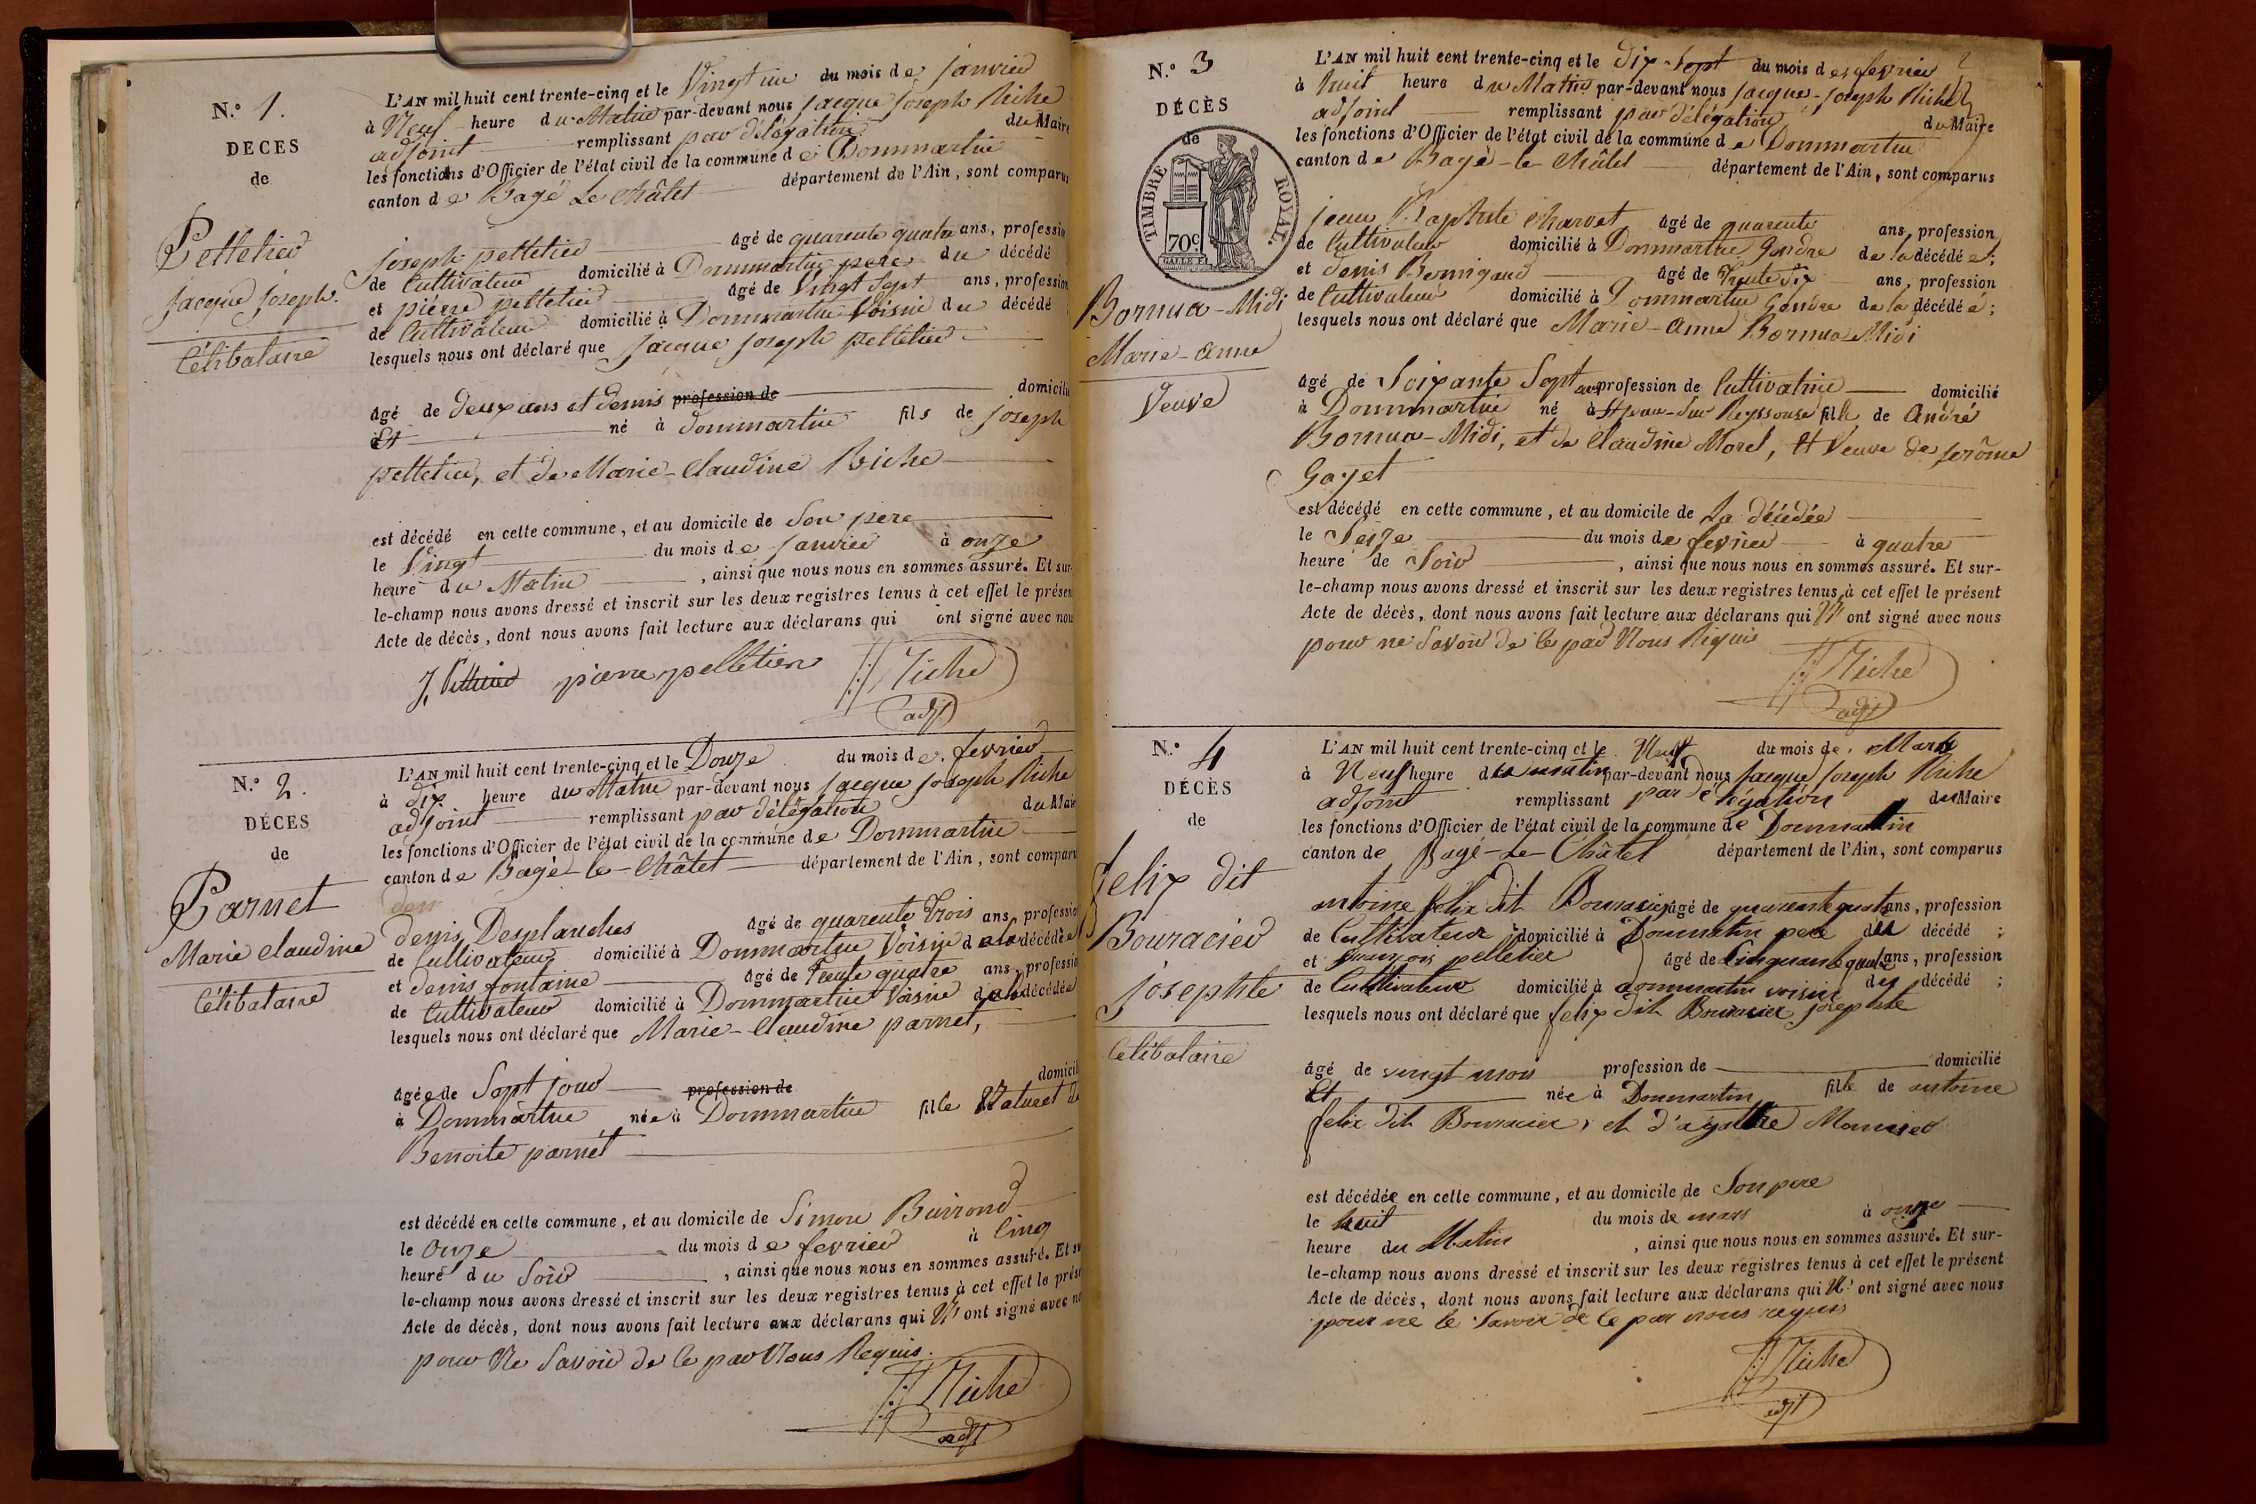 N.º 1.
DÉCES
de
Pelletier
jacque joseph.
Célibataire
L'AN mil huit cent trente-cinq et le Vingt un du mois de janvier
à Neuf heure du Matin par-devant nous jacque joseph Riche
adjoint remplissant par délégation du Maire
les fonctions d'Officier de l'état civil de la commune de Dommartin
canton de Bagé Le Châtel département de l'Ain, sont comparus
joseph pelletier âgé de quarente quatre ans, profession
de Cultivateur domicilié à Dommartin pere du décédé
et pierre pelletier âgé de vingt Sept ans, profession
de Cultivateur domicilié à Dommartin Voisin du décédé
lesquels nous ont déclaré que jacque joseph pelletier
âgé de deux ans et demis profession de domicilié
à né à dommartin fils de joseph
pelletier, et de Marie-Claudine Riche
est décédé en cette commune, et au domicile de Son pere
le Vingt du mois de janvier à onze
heure du Matin, ainsi que nous nous en sommes assuré. Et sur-
le-champ nous avons dressé et inscrit sur les deux registres tenus à cet effet le présent
Acte de décès, dont nous avons fait lecture aux déclarans qui ont signé avec nous
pierre pelletier Riche
adjt
N.º 2.
DÉCES
de
Parnet
Marie Claudine
Célibataire
L'AN mil huit cent trente-cinq et le Douze du mois de fevrier
à dix heure du Matin par-devant nous jacque joseph Riche
adjoint remplissant par délégation du Maire
les fonctions d'Officier de l'état civil de la commune de Dommartin
canton de Bagé-le-Châtel département de l'Ain, sont comparus
denis Desplanches âgé de quarente Trois ans, profession
de Cultivateur domicilié à Dommartin Voisin de la décédée
et denis fontaine âgé de Trente quatre ans, profession
de Cultivateur domicilié à Dommartin Voisin de la décédée
lesquels nous ont déclaré que Marie-Claudine parnet,
âgée de Sept jour profession de domicilié
à Dommartin née à Dommartin fille Naturel de
Benoite parnet
est décédé en cette commune, et au domicile de Simon
le onze du mois de fevrier à Cinq
heure du Soir, ainsi que nous nous en sommes assuré. Et sur-
le-champ nous avons dressé et inscrit sur les deux registres tenus à cet effet le présent
Acte de décès, dont nous avons fait lecture aux déclarans qui N' ont signé avec nous
pour Ne Savoir de Ce par Nous Requis.
Riche
adjt
N.º 3
DÉCÈS
de
TIMBRE ROYAL.
70c
Bornua-Midi
Marie-anne
Veuve
L'AN mil huit cent trente-cinq et le dix-Sept du mois de fevrier
à huit heure du Matin par-devant nous jacque-joseph Riche
adjoint remplissant par délégation du Maire
les fonctions d'Officier de l'état civil de la commune de Dommartin
canton de Bagé-le-Châtel département de l'Ain, sont comparus
jean Baptiste Charvet âgé de quarente ans, profession
de Cultivateur domicilié à Dommartin Gendre de la décédée;
et denis Bernigaud âgé de Trente Six ans, profession
de Cultivateur domicilié à Dommartin Gendre de la décédée;
lesquels nous ont déclaré que Marie-anne Bornua-Midi
âgé de Soixante Sept ans profession de Cultivatrice domicilié
à Dommartin né à St jean-Sur Reyssouse fille de André
Bornua-Midi, et de Claudine Morel, et Veuve de jerôme
Gayet
est décédé en cette commune, et au domicile de La décédée
le Seize du mois de fevrier à quatre
heure de Soir, ainsi que nous nous en sommes assuré. Et sur-
le-champ nous avons dressé et inscrit sur les deux registres tenus à cet effet le présent
Acte de décès, dont nous avons fait lecture aux déclarans qui N' ont signé avec nous
pour ne Savoir de Ce par Nous Requis
Riche
adjt
N.º 4
DÉCÈS
de
felix dit
Bouracier
josephte
Célibataire
L'AN mil huit cent trente-cinq et le Neuf du mois de Mars
à Neuf heure du matin par-devant nous jacque joseph Riche
adjoint remplissant par délégation du Maire
les fonctions d'Officier de l'état civil de la commune de Dommartin
canton de Bagé-Le-Châtel département de l'Ain, sont comparus
antoine felix dit Bouracier âgé de quarente quatre ans, profession
de Cultivateur domicilié à Dommartin pere du décédé;
et françois pelletier âgé de Cinquante quatre ans, profession
de Cultivateur domicilié à dommartin voisin du décédé;
lesquels nous ont déclaré que felix dit Bouracier josephte
âgé de vingt mois profession de domicilié
à née à Dommartin fille de antoine
felix dit Bouracier, et d'agathe Mounier
est décédée en cette commune, et au domicile de Son pere
le huit du mois de mars à onze
heure du Matin, ainsi que nous nous en sommes assuré. Et sur-
le-champ nous avons dressé et inscrit sur les deux registres tenus à cet effet le présent
Acte de décès, dont nous avons fait lecture aux déclarans qui N' ont signé avec nous
pour ne le Savoir de Ce par nous requis
Riche
adjt